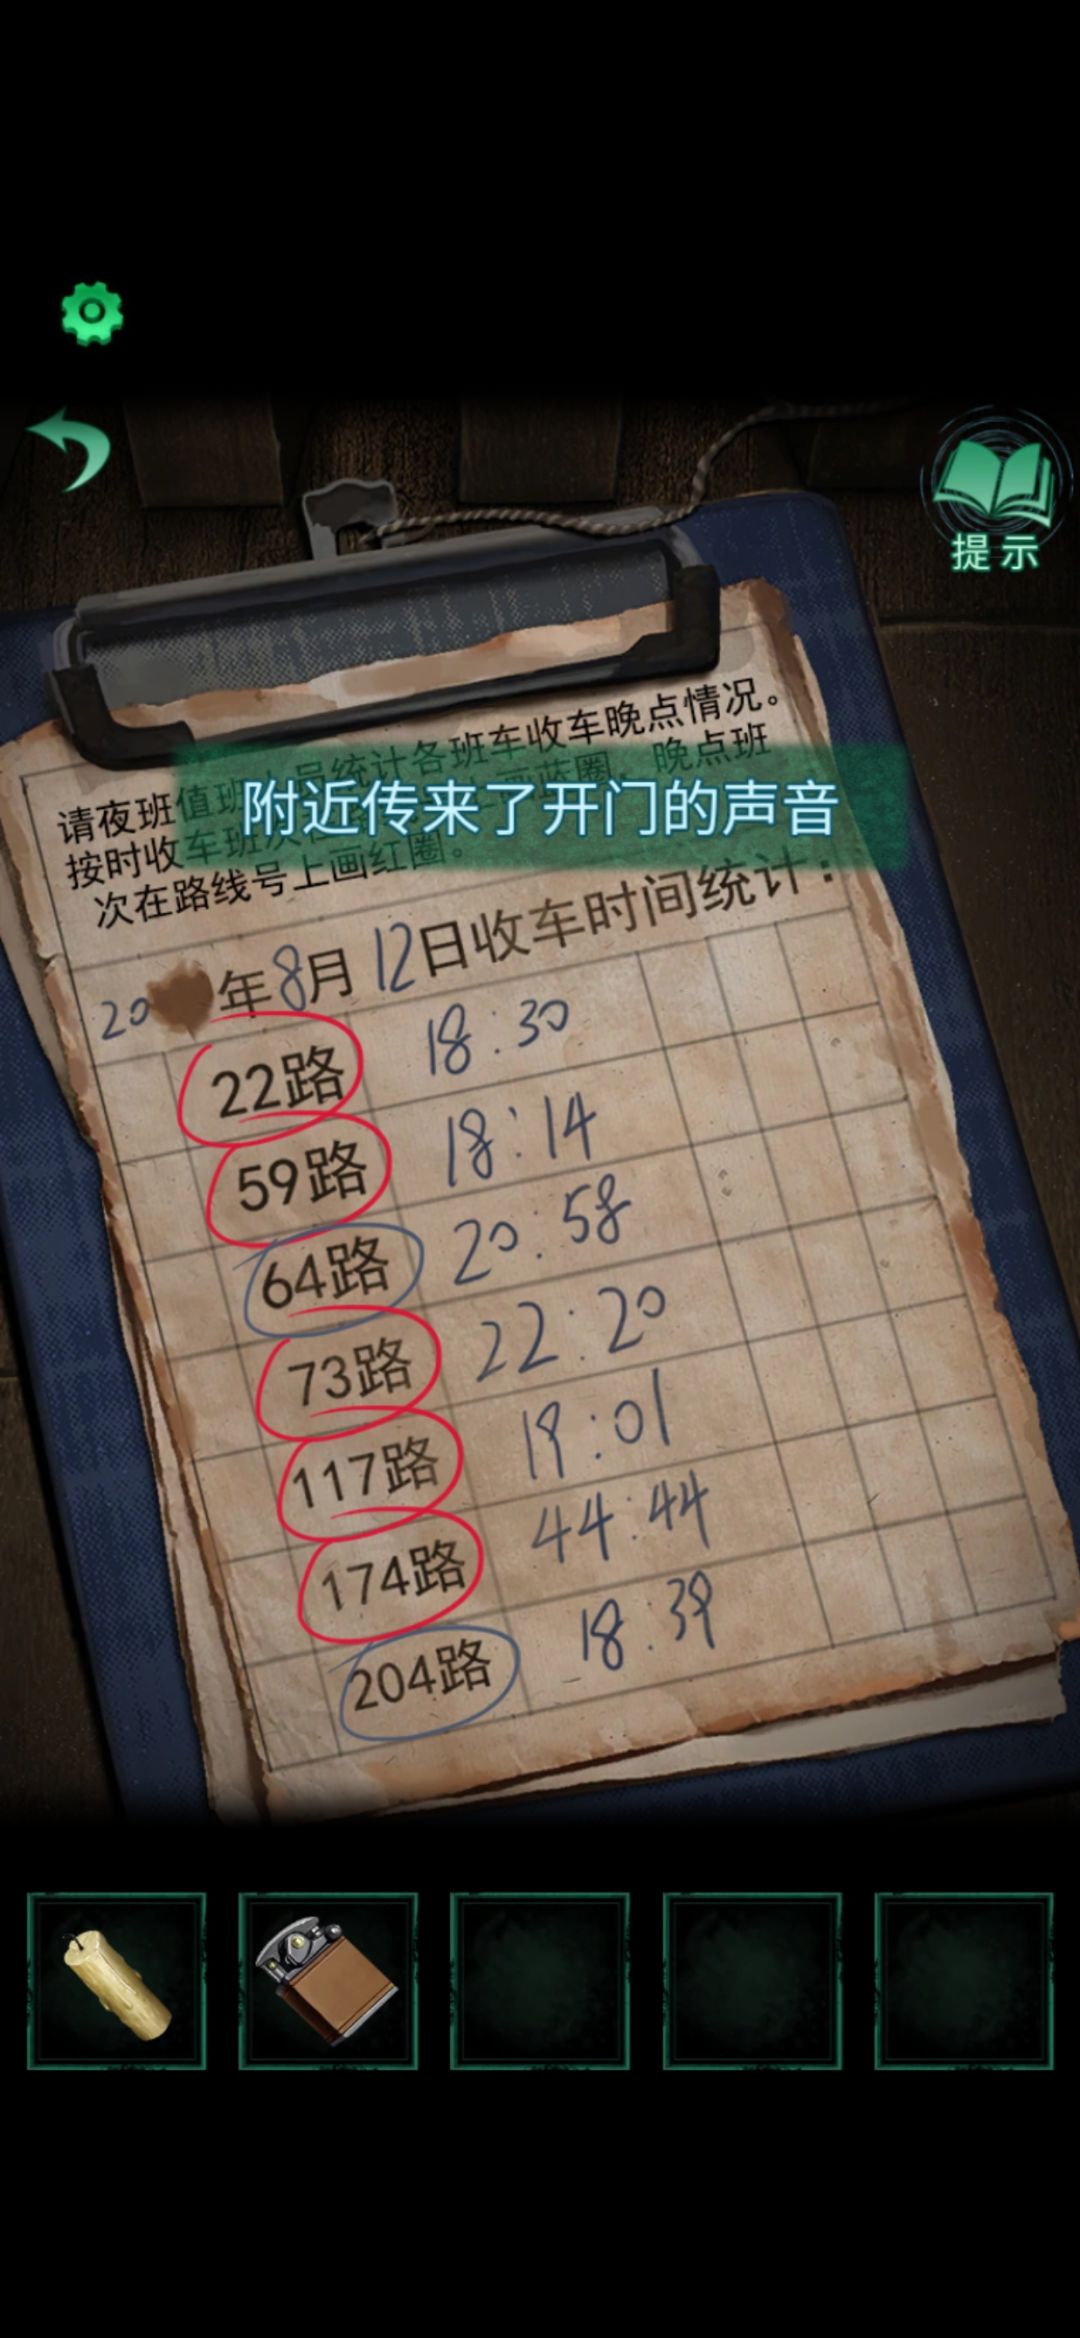 提示
请夜班值班人员统计各班车收车晚点情况。
按时收车班次在路线号上画蓝圈，晚点班
次在路线号上画红圈。
附近传来了开门的声音
20 年8月12日收车时间统计：
22路 18:30
59路 18:14
64路 20:58
73路 22:20
117路 19:01
174路 44:44
204路 18:39